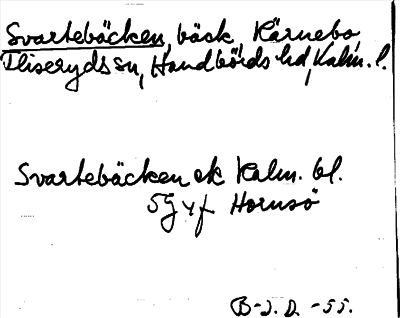 Svartebäcken, bäck, Kärnebo,
Fliseryds sn, Handbörds hd, Kalm. l.
Svartebäcken ek Kalm. bl.
5G vf Hornsö
B-J. D. -55.